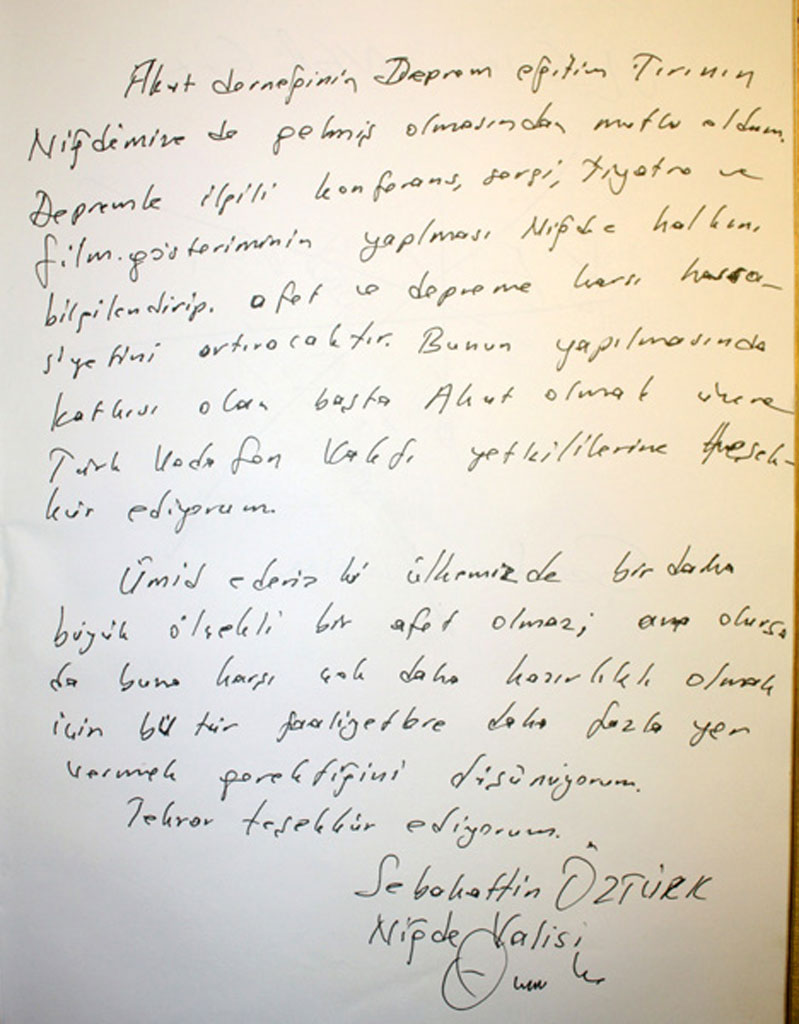 Akut derneğinin Deprem eğitim Tırının
Niğdemize de gelmiş olmasından mutlu oldum.
Depremle ilgili konferans, sergi, tiyatro ve
film gösteriminin yapılması Niğde halkını
bilgilendirip. afet ve depreme karşı hassa-
siyetini artıracaktır. Bunun yapılmasında
katkısı olan başta Akut olmak üzere
Türk Vodafon Vakfı yetkililerine teşek-
kür ediyorum.
Ümid ederiz ki ülkemizde bir daha
büyük ölçekli bir afet olmaz; ama olursa
da buna karşı çok daha hazırlıklı olmak
için bu tür faaliyetlere daha fazla yer
vermek gerektiğini düşünüyorum.
Tekrar teşekkür ediyorum.
Sebahattin ÖZTÜRK
Niğde Valisi